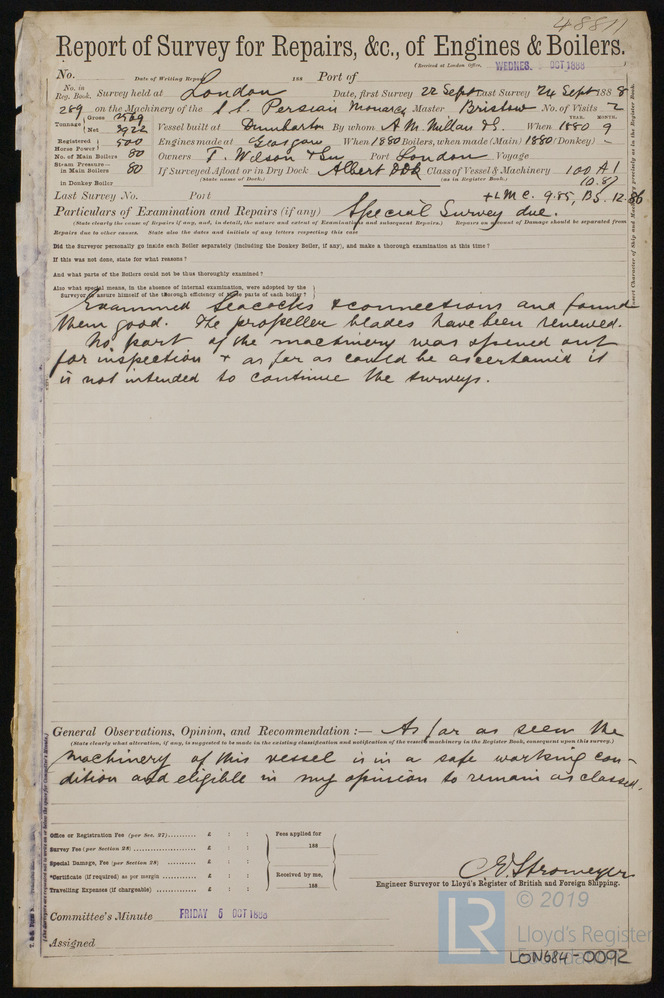 48811
Report of Survey for Repairs, &c., of Engines & Boilers.
(Received at London Office, WEDNES. OCT 1888
No. Date of Writing Report 188 Port of
No. in Reg. Book. Survey held at London Date, first Survey 22 Sept Last Survey 24 Sept 1888
269 on the Machinery of the S.S. Persian Monarch Master Bristow No. of Visits 2
Tonnage Gross Net 3922 Vessel built at Dumbarton By whom A. McMillan & S. When YEAR. 1880 MONTH. 9
Registered Horse Power 500 Engines made at Glasgow When 1880 Boilers, when made (Main) 1880 (Donkey) —
No. of Main Boilers Owners T. Wilson & Son Port London Voyage
Steam Pressure— in Main Boilers 80 If Surveyed Afloat or in Dry Dock Albert Class of Vessel & Machinery 100 A1
in Donkey Boiler (State name of Dock.) (as in Register Book.) 10.87
Last Survey No. Port + LMC. 9.85, BS. 12.86
Particulars of Examination and Repairs (if any) Special Survey due.
(State clearly the cause of Repairs if any, and, in detail, the nature and extent of Examinations and subsequent Repairs.) Repairs on account of Damage should be separated from
Repairs due to other causes. State also the dates and initials of any letters respecting this case
Did the Surveyor personally go inside each Boiler separately (including the Donkey Boiler, if any), and make a thorough examination at this time?
If this was not done, state for what reasons?
And what parts of the Boilers could not be thus thoroughly examined?
Also what special means, in the absence of internal examination, were adopted by the
Surveyor to assure himself of the thorough efficiency of the parts of each boiler?
Examined Seacocks & connections and found
them good. The propeller blades have been renewed.
No part of the machinery was opened out
for inspection & as far as could be ascertained it
is not intended to continue the surveys.
General Observations, Opinion, and Recommendation:— As far as seen the
(State clearly what alteration, if any, is suggested to be made in the existing classification and notification of the vessel's machinery in the Register Book, consequent upon this survey.)
machinery of this vessel is in a safe working con-
dition and eligible in my opinion to remain as classed.
Office or Registration Fee (per Sec. 27).......... £ : : Fees applied for
Survey Fee (per Section 28) ............... £ : : 188
Special Damage, Fee (per Section 28) ......... £ : :
*Certificate (if required) as per margin ......... £ : : Received by me,
Travelling Expenses (if chargeable) ............ £ : : 188
C.E. Stromeyer
Engineer Surveyor to Lloyd's Register of British and Foreign Shipping.
Committee's Minute FRIDAY 5 OCT 1888
Assigned
© 2019
LR
Lloyd's Register
LON684-0092